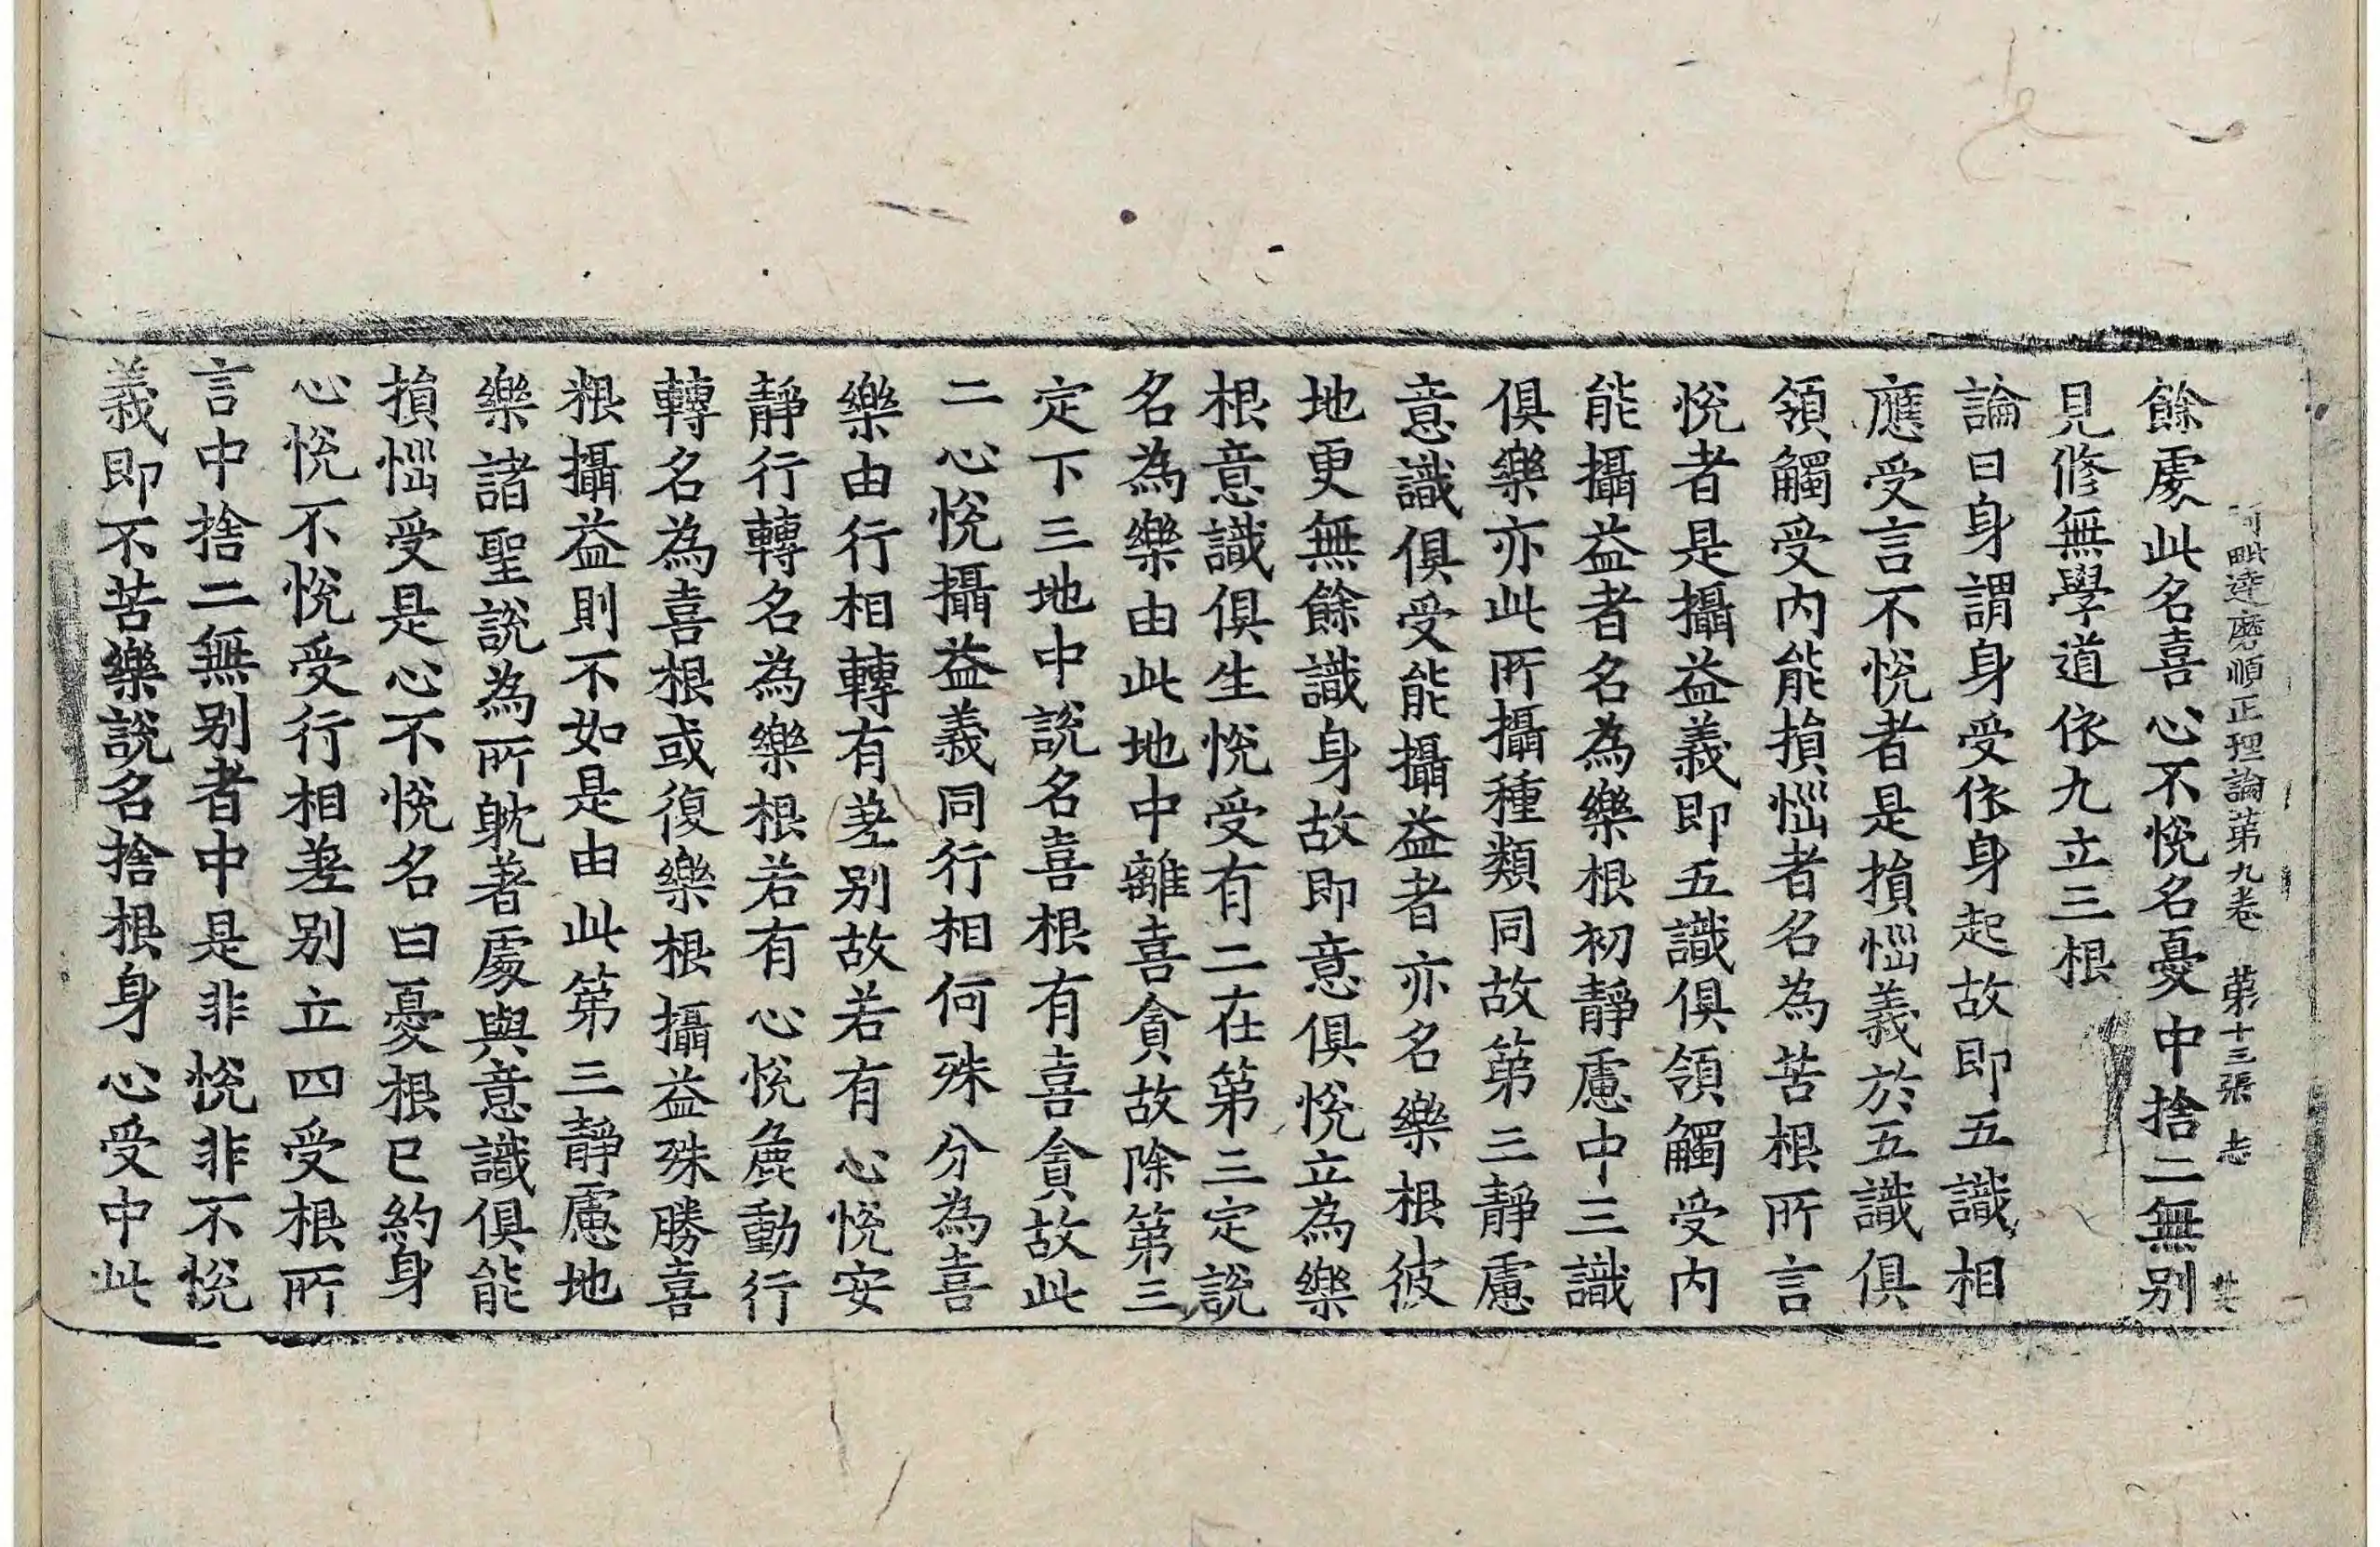 阿毗達磨順正理論第九卷　第十三張　志
餘處此名喜心不悅名憂中捨二無別
見修無學道依九立三根
論曰身謂身受依身起故即五識相
應受言不悅者是損惱義於五識俱
領觸受內能損惱者名為苦根所言
悅者是攝益義即五識俱領觸受內
能攝益者名為樂根初靜慮中三識
俱樂亦此所攝種類同故第三靜慮
意識俱受能攝益者亦名樂根彼
地更無餘識身故即意俱悅立為樂
根意識俱生悅受有二在第三定說
名為樂由此地中離喜貪故除第三
定下三地中說名喜根有喜貪故此
二心悅攝益義同行相何殊分為喜
樂由行相轉有差別故若有心悅安
靜行轉名為樂根若有心悅麁動行
轉名為喜根或復樂根攝益殊勝喜
根攝益則不如是由此第三靜慮地
樂諸聖說為所躭著處與意識俱能
損惱受是心不悅名曰憂根已約身
心悅不悅受行相差別立四受根所
言中捨二無別者中是非悅非不悅
義即不苦樂說名捨根身心受中此